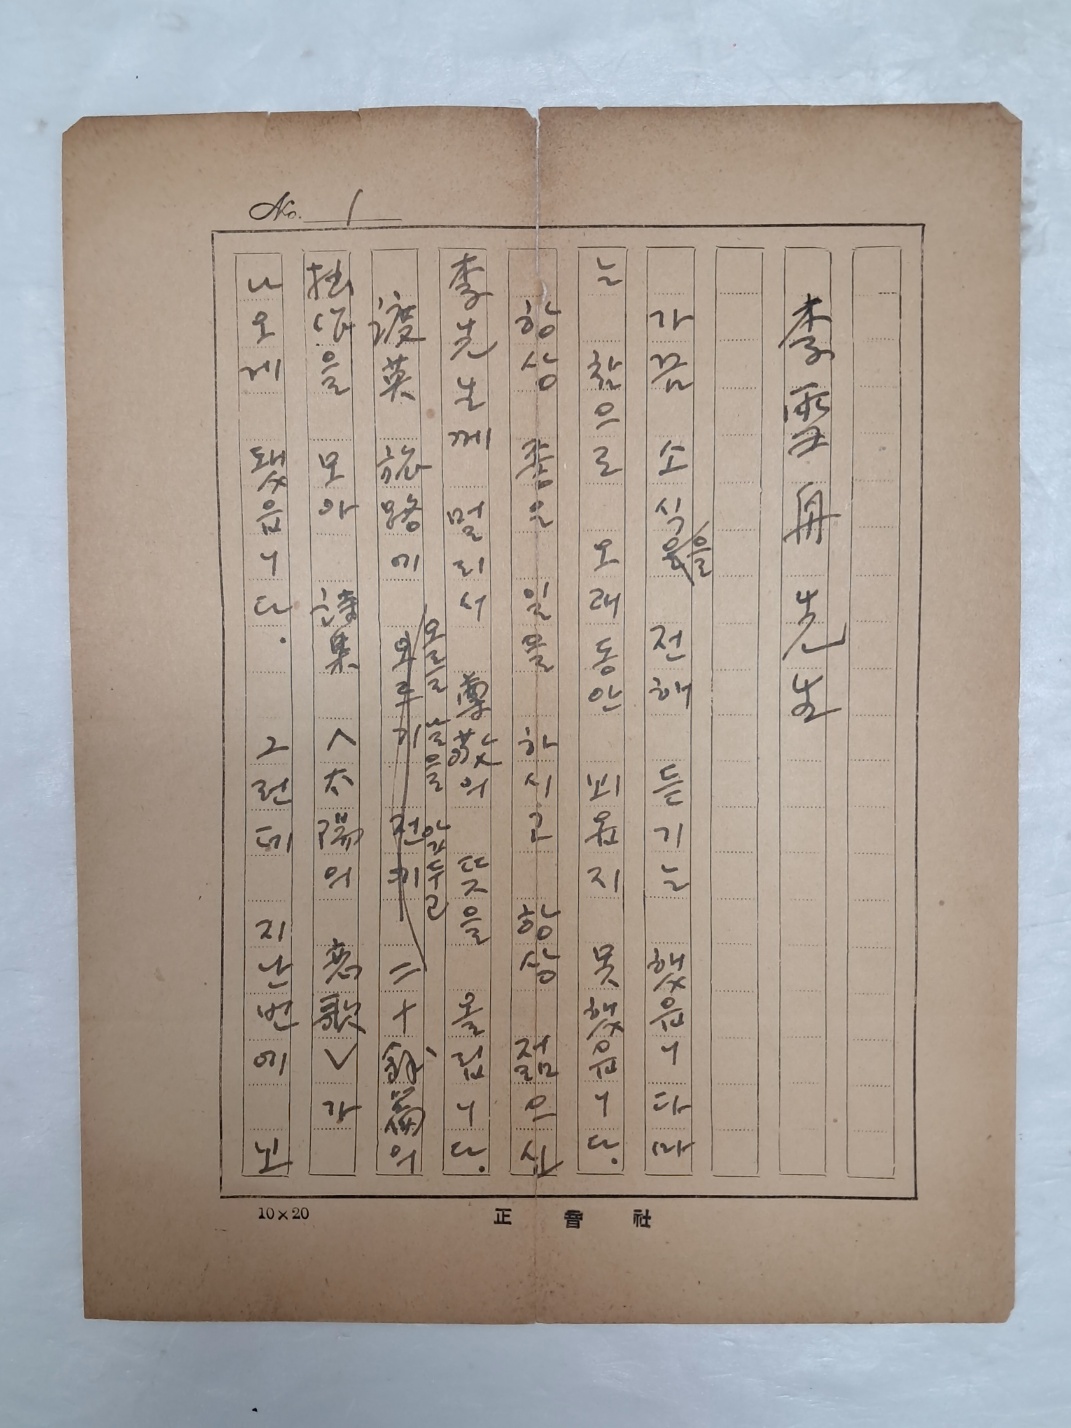 No. 1
李雪舟 先生
가끔 소식을 전해 듣기는 했읍니다마
는 참으로 오래동안 뵈옵지 못했읍니다.
항상 좋은 일을 하시고 항상 젊으신
李先生께 멀리서 尊敬의 뜻을 올립니다.
渡英 旅路에 오르기 전에 二十餘篇의
오를 날을 앞두고
拙作을 모아 詩集 <太陽의 戀歌>가
나오게 됐읍니다. 그런데 지난번에
10×20
正音社